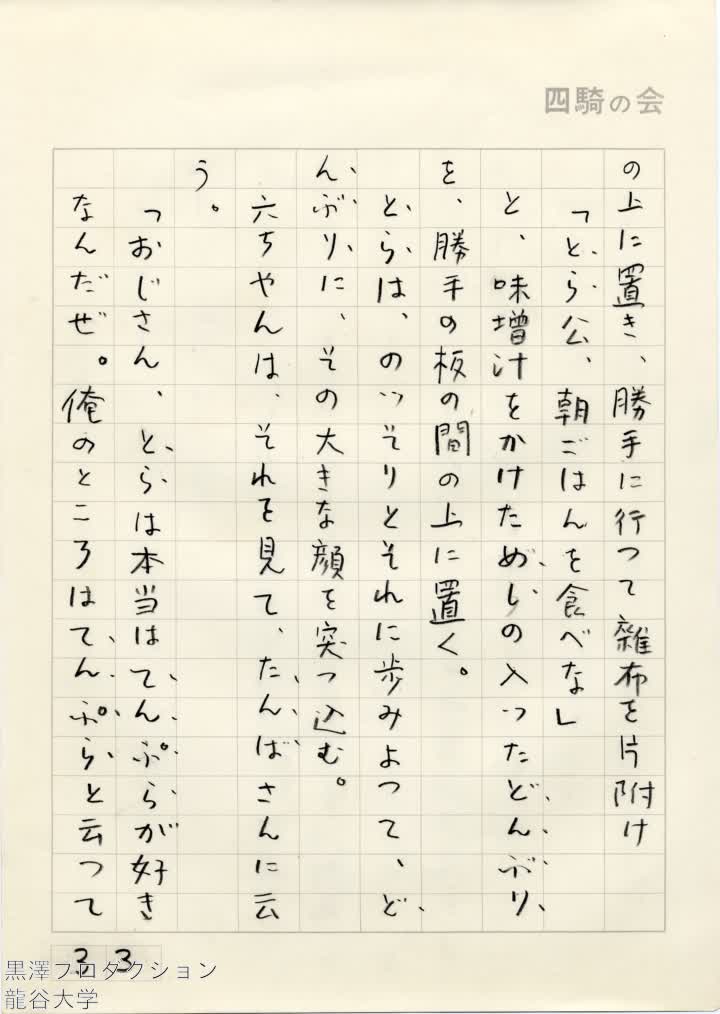 四騎の会
の上に置き、勝手に行つて雑布を片附け
「とら公、朝ごはんを食べな」
と、味増汁をかけためしの入ったどんぶり
を、勝手の板の間の上に置く。
とらは、のっそりとそれに歩みよつて、ど
んぶりに、その大きな顔を突っ込む。
六ちやんは、それを見て、たんばさんに云
う。
「おじさん、とらは本当はてんぷらが好き
なんだぜ。俺のところはてんぷらと云つて
33
黒澤プロダクション
龍谷大学